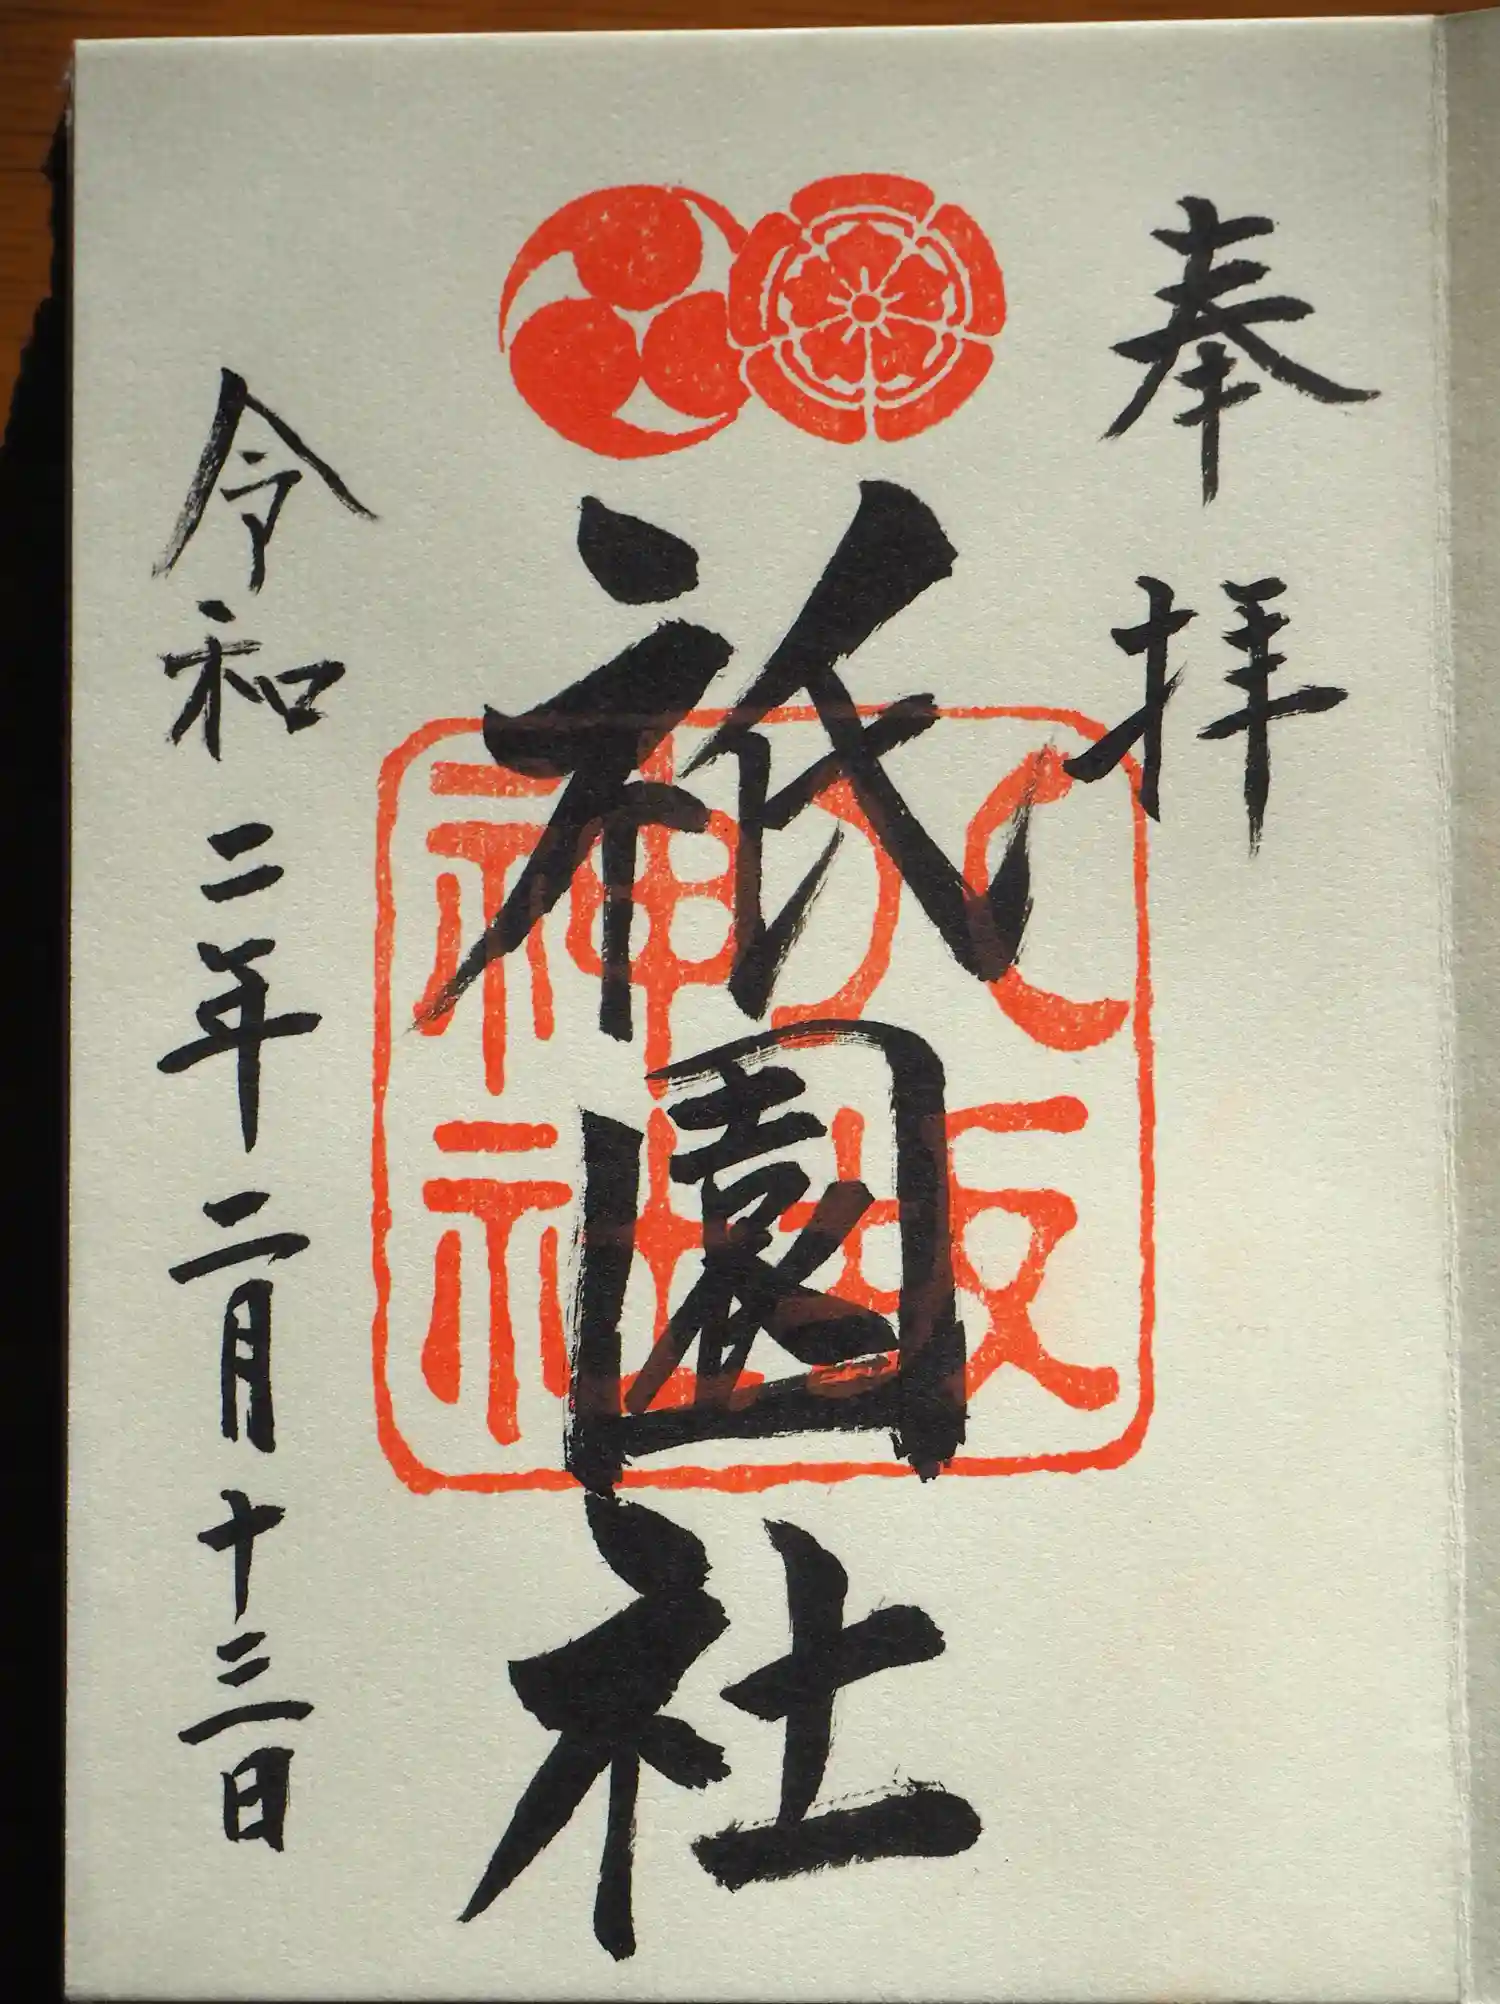 奉拝
祇園社
八坂神社
令和二年二月十三日